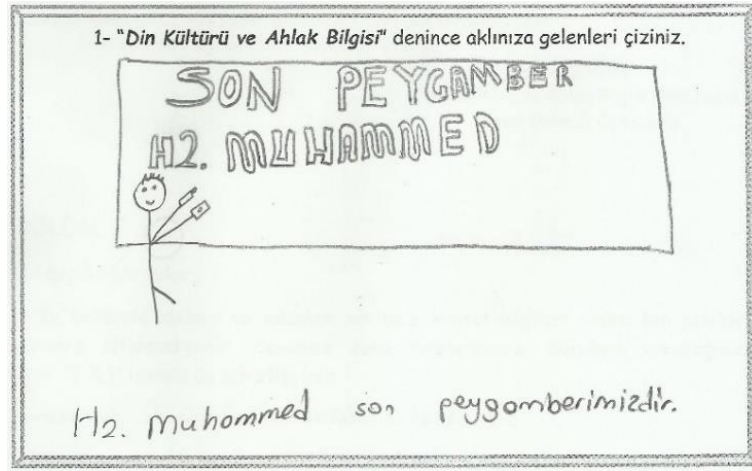 1- "Din Kültürü ve Ahlak Bilgisi" denince aklınıza gelenleri çiziniz.
SON PEYGAMBER
HZ. MUHAMMED
Hz. Muhammed son peygamberimizdir.